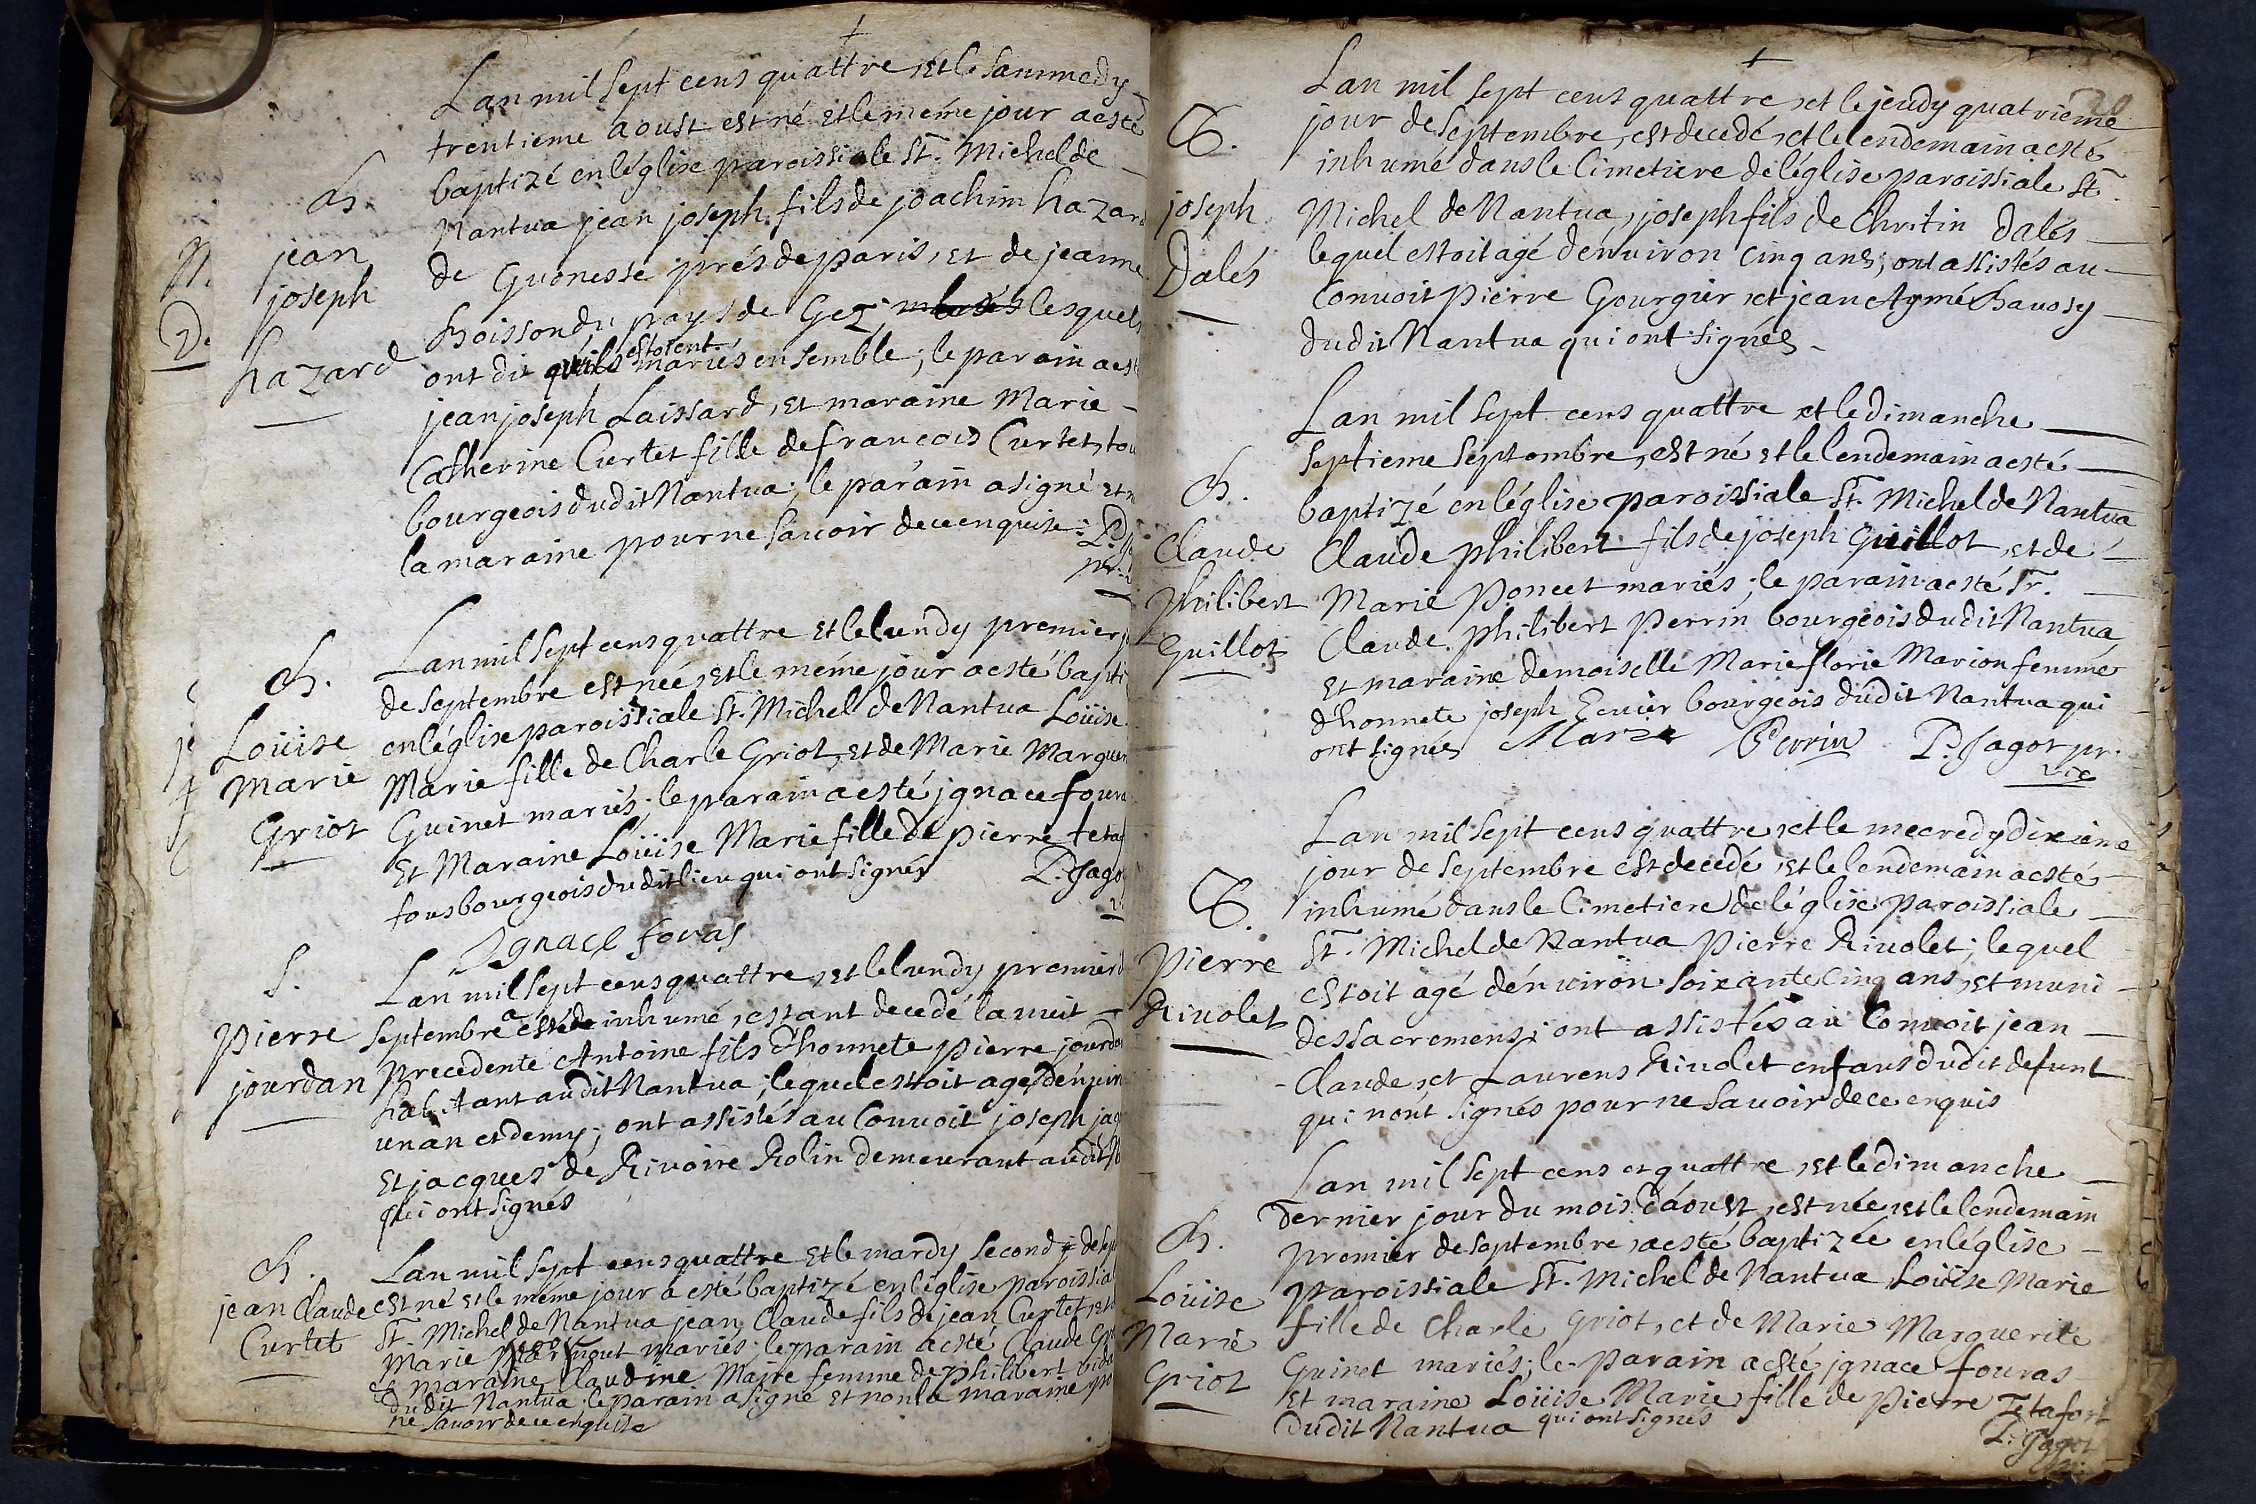 Lan mil sept cens quattre, et le sammedy
trentieme aoust est né et le méme jour a esté
baptizé en léglise paroissiale St. Michel de
B.
Nantua jean joseph fils de joachim hazard
N. jean
de Guonesse prés de paris, et de jeanne
joseph
Boisson du pays de Gez, lesquels
D.
hazard
estoient
ont dit quils mariés ensemble; le parain a est
jean joseph Laissard, et maraine Marie
Catherine Curtet fille de francois Curtet, tou
bourgeois dudit Nantua; le parain a signé et n
la maraine pour ne savoir de ce enquise. P. Ja
Lan mil sept cens quattre et le lundy premier j
B.
de septembre est née, et le méme jour a esté bapti
Loüise
en léglise paroissiale St. Michel de Nantua Loüise
Marie
Marie fille de Charle Griot, et de Marie Marguer
Griot
Guinet mariés; le parain a esté jgnace four
et Maraine Loüise Marie fille de pierre tetaf
tous bourgeois dudit lieu qui ont signés P. Jago
Jgnace fovras
S.
Lan mil sept cens quattre, et le lundy premier
pierre
septembre a esté inhumé, estant decedé la nuit
jourdan
precedente Antoine fils dhonnete pierre jourda
habitant audit Nantua; lequel estoit agé denvir
un an et demy; ont assistés au Convoit joseph jag
et jacques de Rivoire Rolin demeurant audit N
qui ont signés
B.
Lan mil sept cens quattre et le mardy second j. de sep
jean Claude
est né et le méme jour a esté baptizé en léglise paroissial
Curtet
St. Michel de Nantua jean Claude fils de jean Curtet, et
Marie mariés; le parain a esté Claude
et maraine Claudine Maire femme de philibert
dudit Nantua; le parain a signé et non la maraine
ne savoir de ce enquise
Lan mil sept cens quattre, et le jeudy quatrieme
20
jour de septembre, est decedé, et le lendemain a esté
S.
inhumé dans le Cimetiere de léglise paroissiale St.
joseph
Michel de Nantua, joseph fils de Chritin Dalés
Dalés
lequel estoit agé denviron cinq ans; ont assistés au
Convoit pierre Gourgier et jean Aymé Chavosy
dudit Nantua qui ont signés
Lan mil sept cens quattre et le dimanche
septieme septembre, est né et le lendemain a esté
B.
baptizé en léglise paroissiale St. Michel de Nantua
Claude
Claude philibert fils de joseph Guillot, et de
philibert
Marie poncet mariés; le parain a esté Sr.
Guillot
Claude philibert perrin bourgeois dudit Nantua,
et maraine demoiselle Marie florie Marion femme
dhonnete joseph Ecuier bourgeois dudit Nantua qui
ont signés Marie Perrin P. Jagot pr.
vic
Lan mil sept cens quattre, et le mecredy dixieme
jour de septembre est decedé, et le lendemain a esté
S.
inhumé dans le Cimetiere de léglise paroissiale
pierre
St. Michel de Nantua pierre Rivolet; lequel
Rivolet
estoit agé denviron soixante cinq ans, et muni
des sacremens; ont assistés au Convoit jean
Claude, et Laurens Rivolet enfans dudit defunt
qui nont signés pour ne savoir de ce enquis
Lan mil sept cens et quattre, et le dimanche
Dernier jour du mois d'aoust, est née et le lendemain
B.
premier de septembre, a esté baptizée en léglise
Loüise
paroissiale St. Michel de Nantua Loüise Marie
Marie
fille de Charle Griot, et de Marie Marguerite
Griot
Guinet mariés; le parain a esté jgnace fouras
et maraine Loüise Marie fille de pierre Tetafort
dudit Nantua qui ont signés
P. Jagot